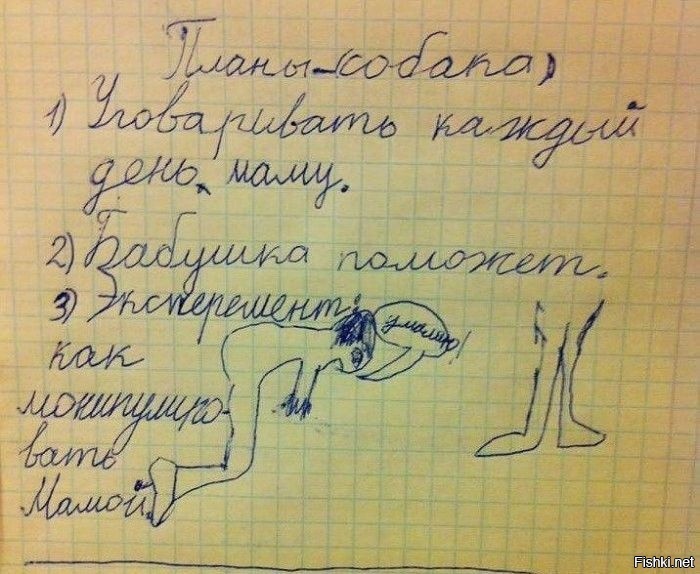 Планы-(собака)
1) Уговаривать каждый
день маму.
2) Бабушка поможет.
3) Эксперемент:
как
монипулиро-
вать
Мамой.
умаляю!
Fishki.net